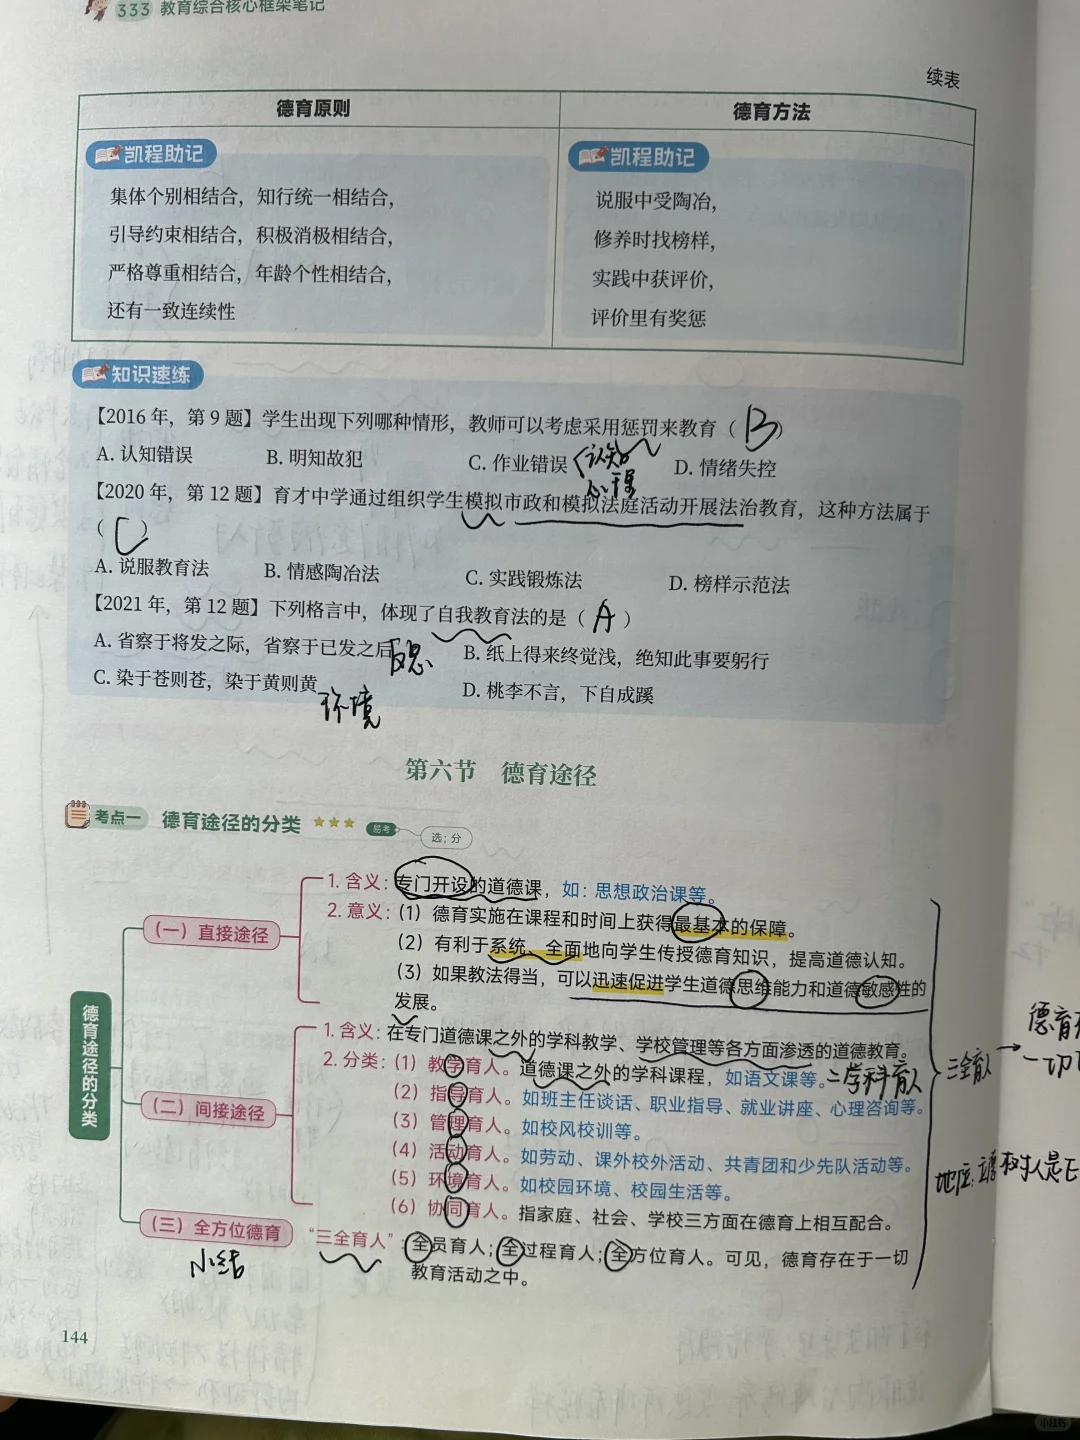 333 教育综合核心框架笔记
续表
德育原则
德育方法
凯程助记
集体个别相结合，知行统一相结合，
引导约束相结合，积极消极相结合，
严格尊重相结合，年龄个性相结合，
还有一致连续性
凯程助记
说服中受陶冶，
修养时找榜样，
实践中获评价，
评价里有奖惩
知识速练
【2016 年，第 9 题】学生出现下列哪种情形，教师可以考虑采用惩罚来教育（ B ）
A. 认知错误 B. 明知故犯 C. 作业错误 D. 情绪失控
认知
心理
【2020 年，第 12 题】育才中学通过组织学生模拟市政和模拟法庭活动开展法治教育，这种方法属于
（ C ）
A. 说服教育法 B. 情感陶冶法 C. 实践锻炼法 D. 榜样示范法
【2021 年，第 12 题】下列格言中，体现了自我教育法的是（ A ）
A. 省察于将发之际，省察于已发之后 反思 B. 纸上得来终觉浅，绝知此事要躬行
C. 染于苍则苍，染于黄则黄 环境 D. 桃李不言，下自成蹊
第六节 德育途径
考点一 德育途径的分类 ★★★ 易考 选；分
德育途径的分类
（一）直接途径
1. 含义：专门开设的道德课，如：思想政治课等。
2. 意义：（1）德育实施在课程和时间上获得最基本的保障。
（2）有利于系统、全面地向学生传授德育知识，提高道德认知。
（3）如果教法得当，可以迅速促进学生道德思维能力和道德敏感性的
发展。
（二）间接途径
1. 含义：在专门道德课之外的学科教学、学校管理等各方面渗透的道德教育。
2. 分类：（1）教学育人。道德课之外的学科课程，如语文课等。=学科育人
（2）指导育人。如班主任谈话、职业指导、就业讲座、心理咨询等。
（3）管理育人。如校风校训等。
（4）活动育人。如劳动、课外校外活动、共青团和少先队活动等。
（5）环境育人。如校园环境、校园生活等。
（6）协同育人。指家庭、社会、学校三方面在德育上相互配合。
（三）全方位德育
小结
“三全育人”：全员育人；全过程育人；全方位育人。可见，德育存在于一切
教育活动之中。
三全育人 →
德育
一切
地位：立德树人是
144